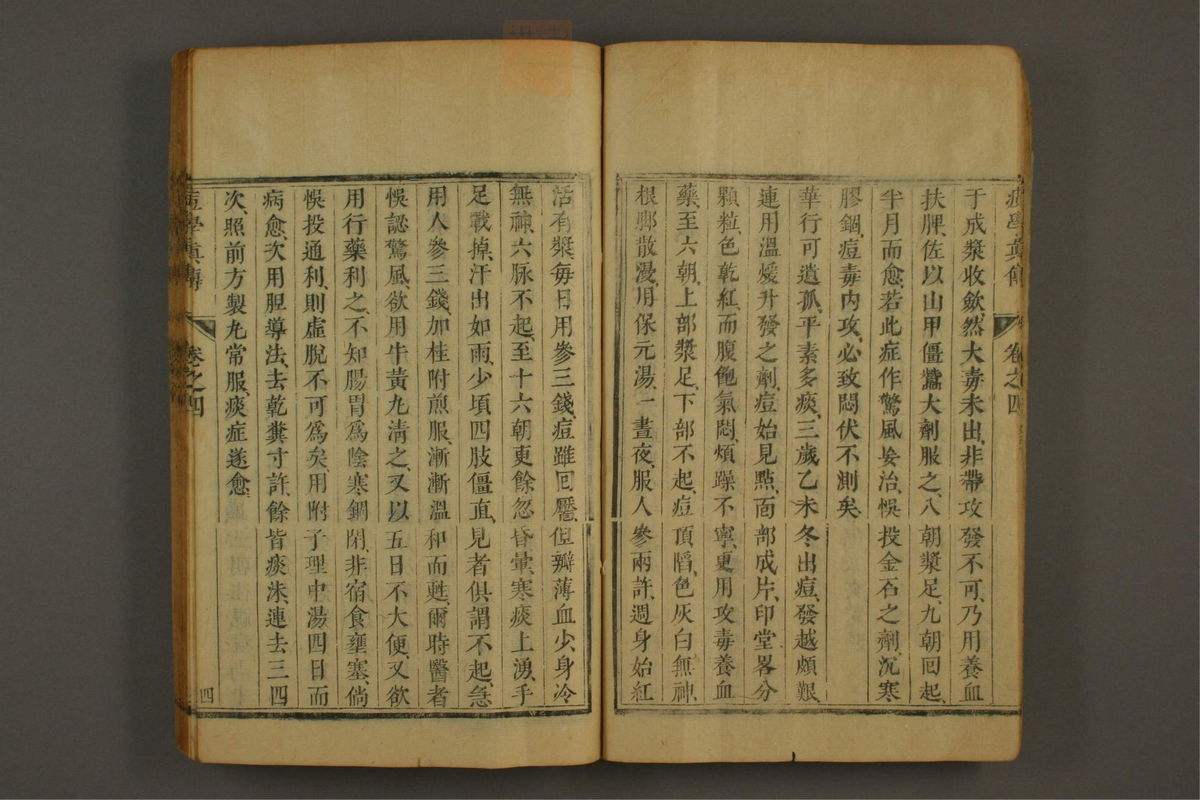 痘學眞傳　卷之四
于成漿收斂、然大毒未出、非帶攻發不可、乃用養血
扶脾、佐以山甲僵蠶大劑服之、八朝漿足、九朝回起、
半月而愈、若此症作驚風妄治、悞投金石之劑、沉寒
膠錮、痘毒內攻、必致悶伏不測矣、
華行可遺孤、平素多痰、三歲乙未冬出痘、發越頗艱、
連用溫煖升發之劑、痘始見點、面部成片、印堂畧分
顆粒、色乾紅、而腹飽氣悶、煩躁不寧、更用攻毒養血
藥、至六朝、上部漿足、下部不起、痘頂陷、色灰白無神、
根脚散漫、用保元湯、一晝夜、服人參兩許、週身始紅
活有漿、每日用參三錢、痘雖回靨、但瓣薄血少、身冷
無神、六脉不起、至十六朝更餘、忽昏暈、寒痰上湧、手
足戰掉、汗出如雨、少頃四肢僵直、見者俱謂不起、急
用人參三錢、加桂附煎服、漸漸溫和而甦、爾時醫者
悞認驚風、欲用牛黃丸清之、又以五日不大便、又欲
用行藥利之、不知腸胃爲陰寒錮閉、非宿食壅塞、倘
悞投通利、則虛脫不可爲矣、用附子理中湯四日而
病愈、次用胆導法、去乾糞寸許、餘皆痰沫、連去三四
次、照前方製丸常服、痰症遂愈、
痘學眞傳　卷之四　四